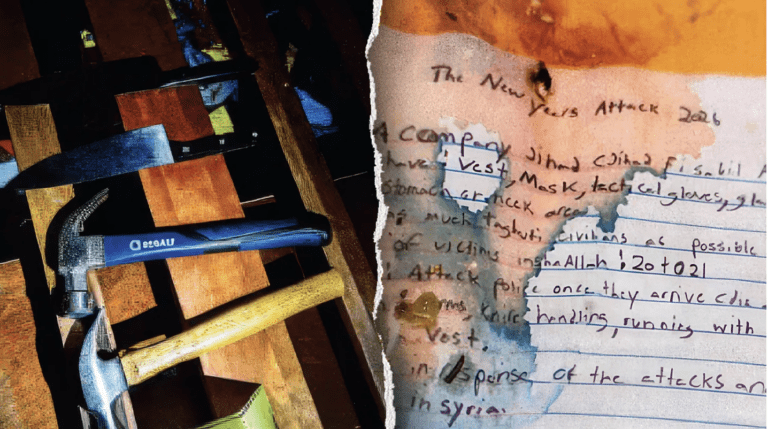 The New
Years Attack 2026
A Company Jihad Jihad Fi sabil
have: Vest, Mask, tactical gloves,
stomach or neck area
much taghuti civilians as possible
of victims inshaAllah: 20 to 21
Attack police once they arrive
arms, knife handling, running with
vest.
in response of the attacks
in syria.